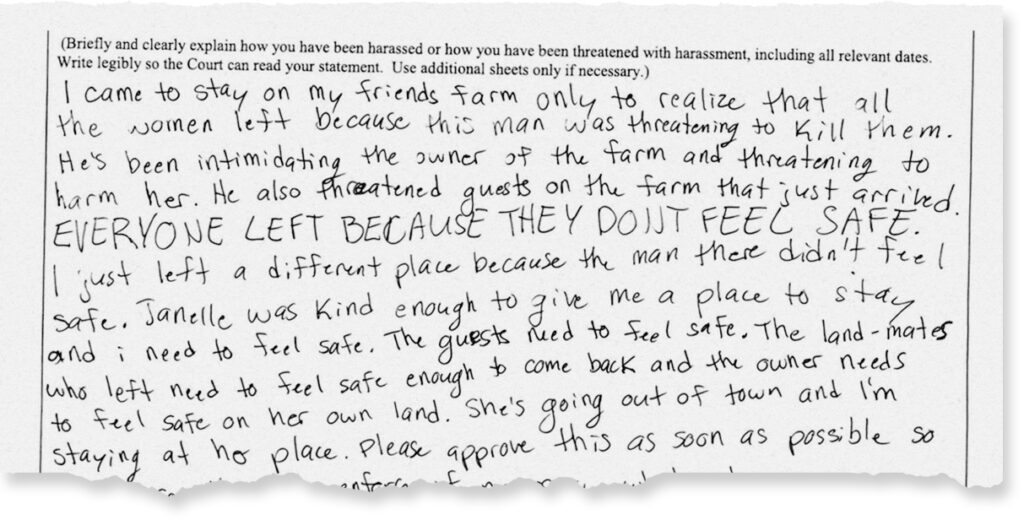 (Briefly and clearly explain how you have been harassed or how you have been threatened with harassment, including all relevant dates.
Write legibly so the Court can read your statement. Use additional sheets only if necessary.)
I came to stay on my friends farm only to realize that all
the women left because this man was threatening to kill them.
He's been intimidating the owner of the farm and threatening to
harm her. He also threatened guests on the farm that just arrived.
EVERYONE LEFT BECAUSE THEY DONT FEEL SAFE.
I just left a different place because the man there didn't feel
safe. Janelle was kind enough to give me a place to stay
and i need to feel safe. The guests need to feel safe. The land-mates
who left need to feel safe enough to come back and the owner needs
to feel safe on her own land. She's going out of town and I'm
staying at her place. Please approve this as soon as possible so